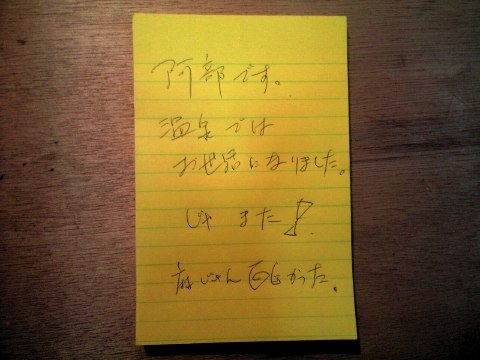 阿部です。
温泉では
お世話になりました。
じゃ また!
麻じゃん 面白かった。